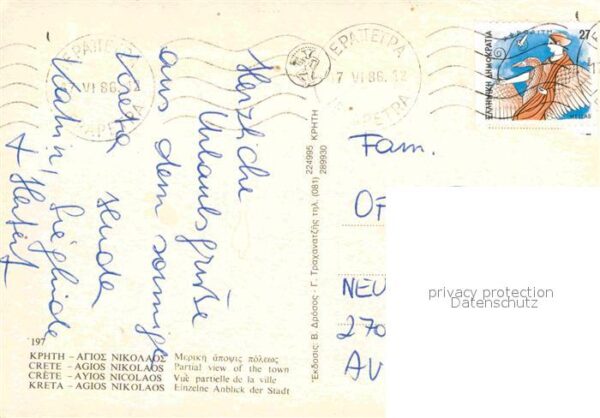 Herzliche
Urlaubsgrüße
aus dem sonnigen
Kreta senden
Katrin, Sieghilde
+ Herbert
ΙΕΡΑΠΕΤΡΑ
VI 86
ΙΕΡΑΠΕΤΡΑ
17 VI 86
IERAPETRA
27
ΑΦΡΟΔΙΤΗ
ΕΛΛΗΝΙΚΗ ΔΗΜΟΚΡΑΤΙΑ
HELLAS
Fam.
OF
NEU
270
AU
privacy protection
Datenschutz
Έκδοσις Β. Δρόσος - Γ. Τραχανατζής τηλ. (081) 224995 289930 ΚΡΗΤΗ
197
ΚΡΗΤΗ - ΑΓΙΟΣ ΝΙΚΟΛΑΟΣ Μερική άποψις πόλεως
CRETE - AGIOS NIKOLAOS Partial view of the town
CRÈTE - AYIOS NICOLAOS Vuè partielle de la ville
KRETA - AGIOS NIKOLAOS Einzelne Anblick der Stadt